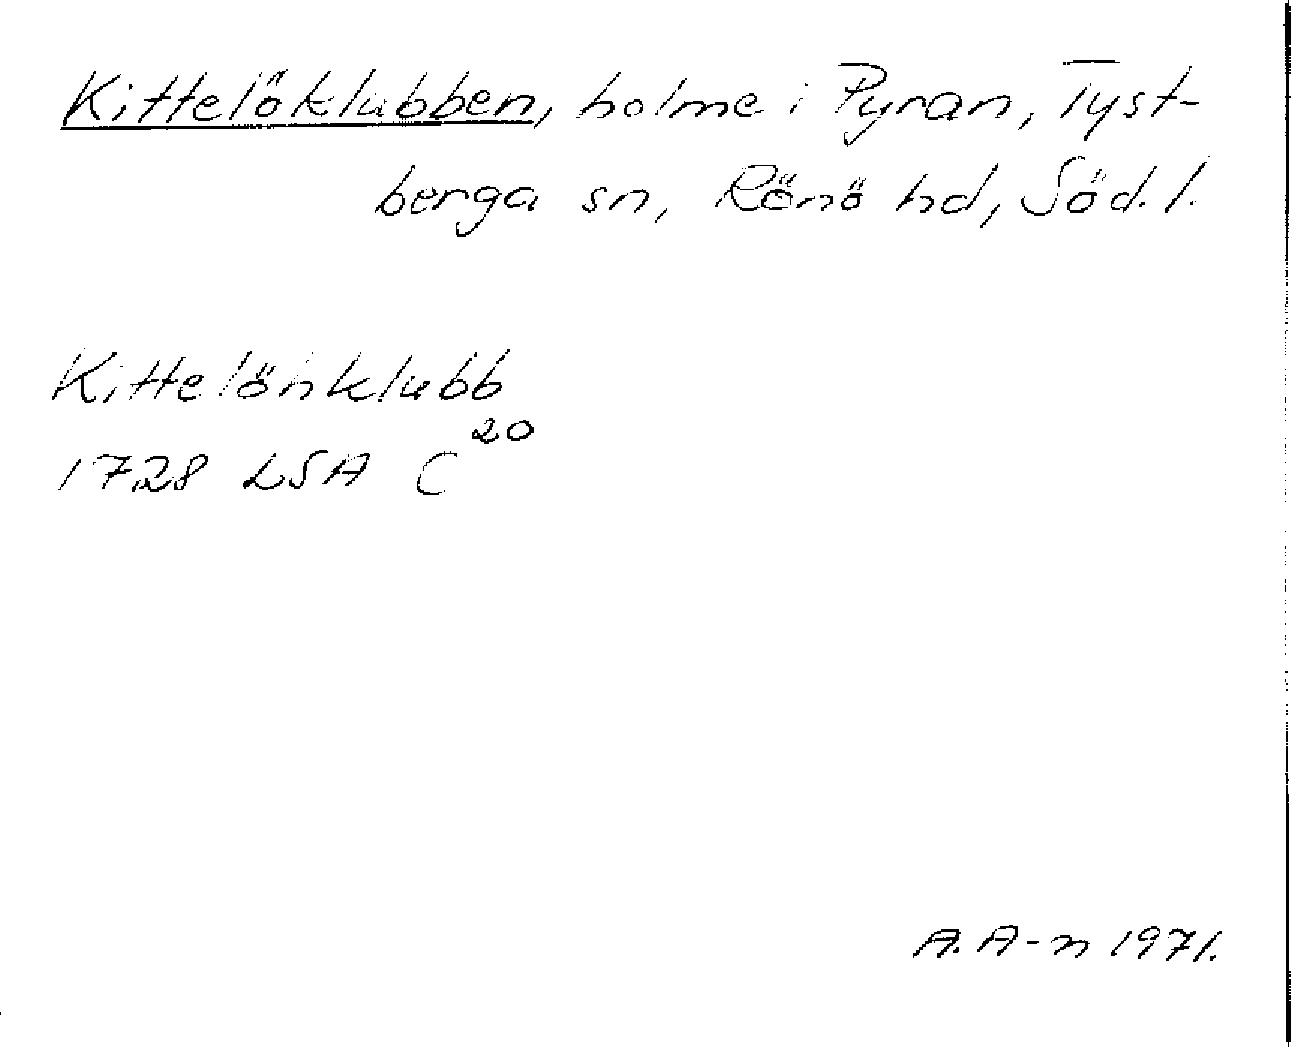 Kittelöklubben, holme i Pyran, Tyst-
berga sn, Rönö hd, Söd. l.
Kittelöhklubb
1728 LSA C²⁰
A. A-n 1971.